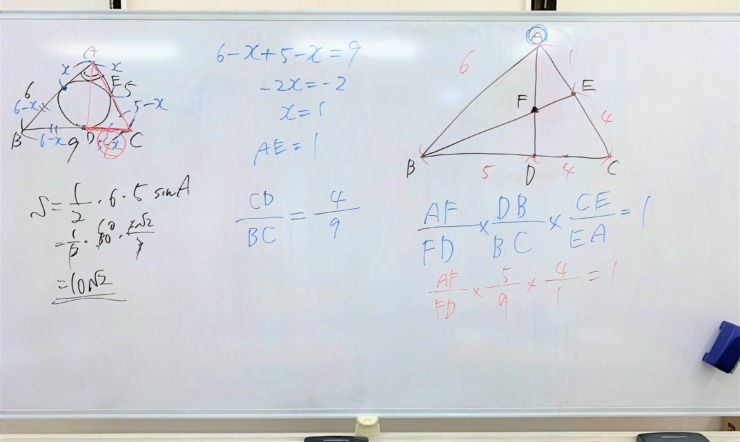 A
x x
6 E 5
6-x 5-x
B 6-x 9 D 5-x C
S = 1/2 · 6 · 5 sinA
= 10√2
6-x+5-x=9
-2x=-2
x=1
AE=1
CD/BC = 4/9
A
6 1
E
F
4
B 5 D 4 C
AF/FD × DB/BC × CE/EA = 1
AF/FD × 5/9 × 4/1 = 1